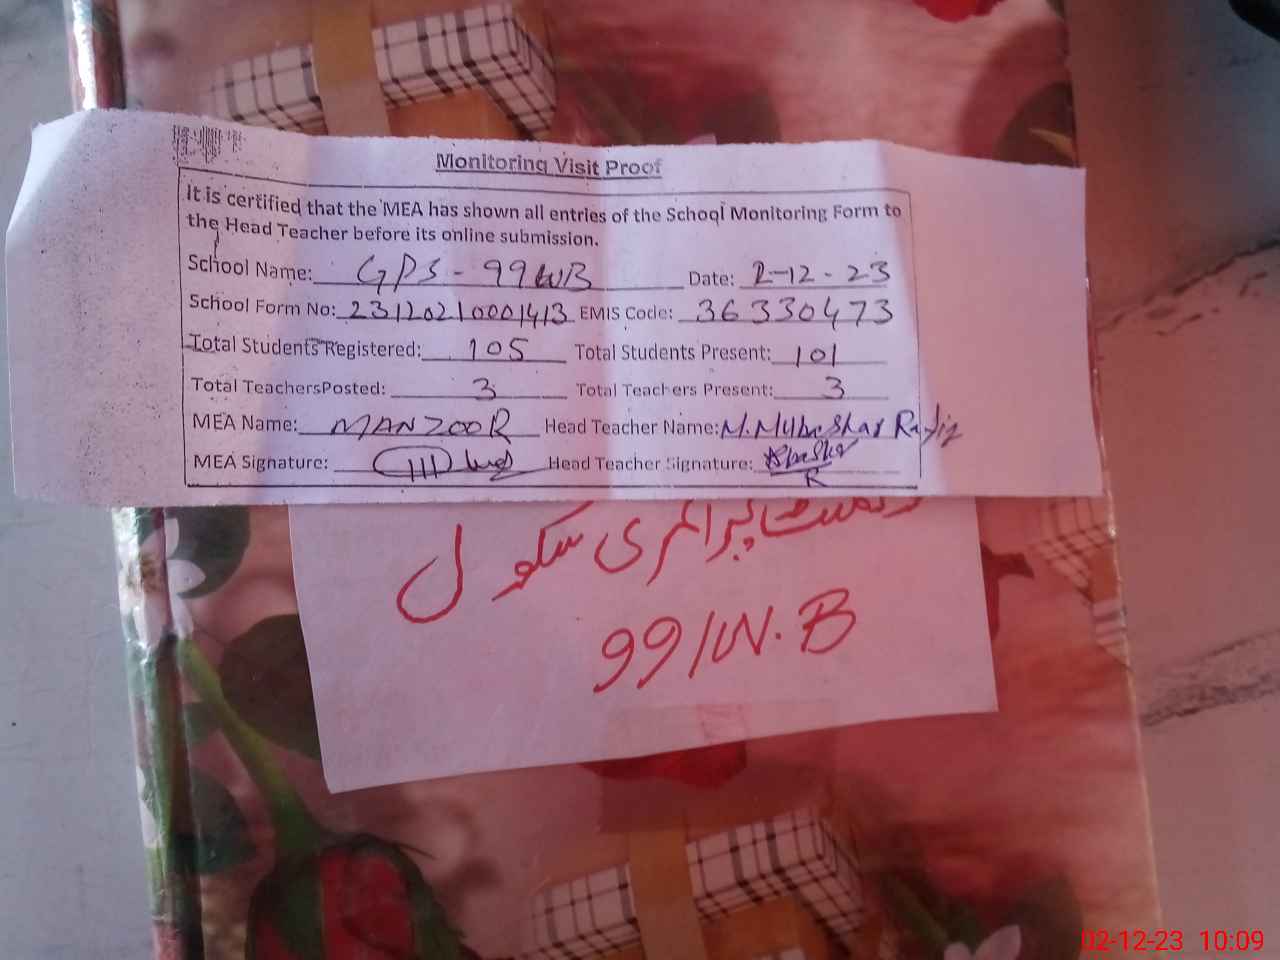 Monitoring Visit Proof
It is certified that the MEA has shown all entries of the School Monitoring Form to
the Head Teacher before its online submission.
School Name: GPS - 99 WB Date: 2-12-23
School Form No: 23120210001413 EMIS Code: 36330473
Total Students Registered: 105 Total Students Present: 101
Total TeachersPosted: 3 Total Teachers Present: 3
MEA Name: MANZOOR Head Teacher Name: M. Mubashar Rafiq
MEA Signature: Head Teacher Signature:
پرائمری سکول
99/W.B
02-12-23 10:09